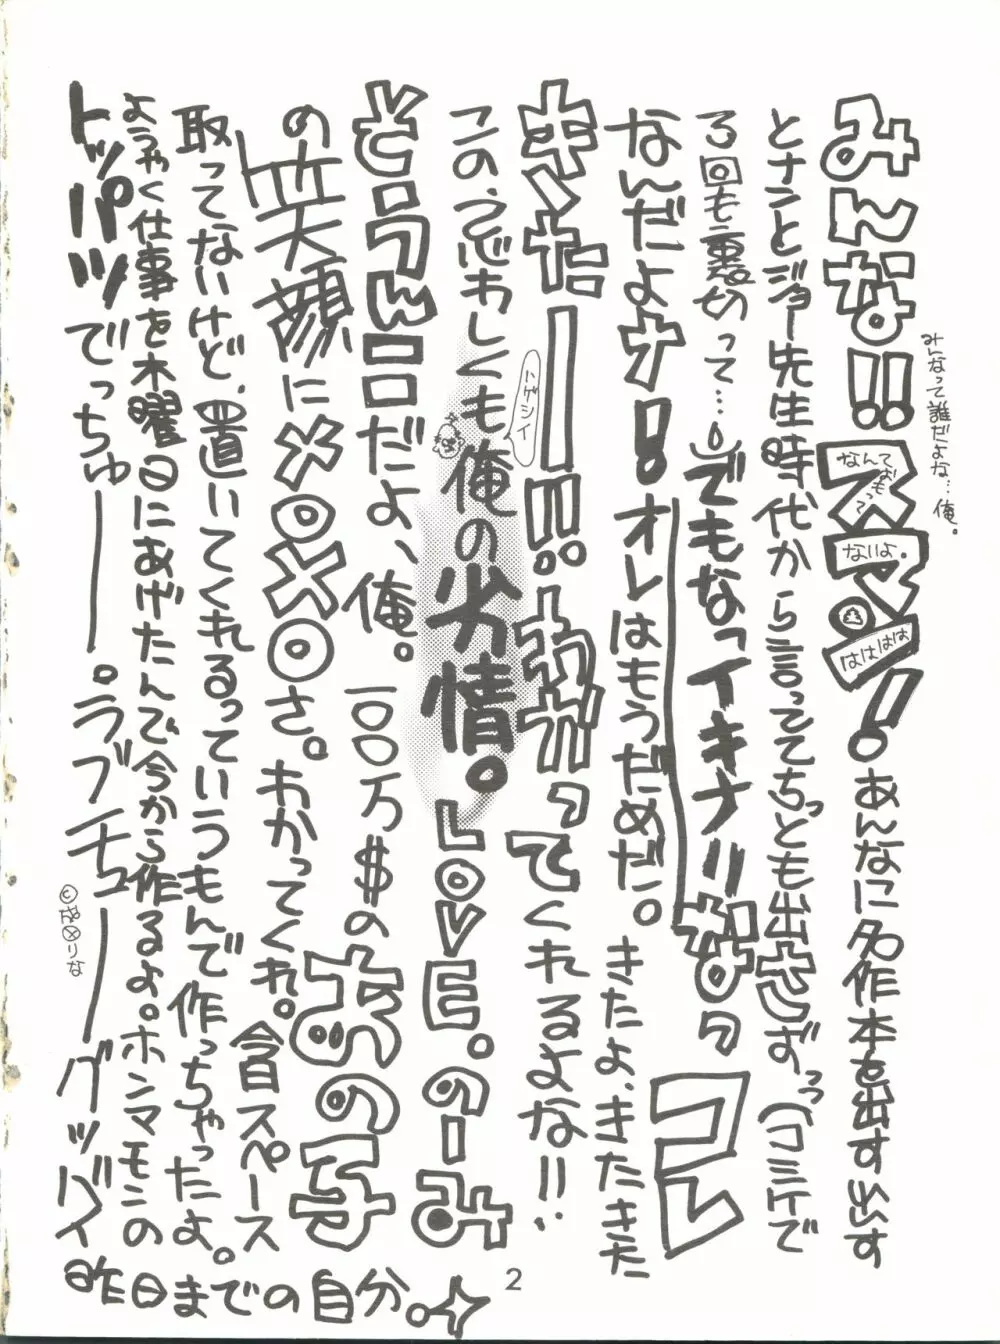 みんな!!スマン!あんなに名作本を出す出す
なんておもってないよ。
はははは
みんなって誰だよな…俺。
とナラとジョー先生時代から言っててちっとも出さずっっ(コミケで
る回も裏切って…。)でもなっイキナリなっコレ
なんだよウ!オレはもうだめだ。きたよ、きたきた
キたーー!!わかってくれるよな!!
ハゲシイ
この、うふわしくも俺の劣情。LOVE。のーみ
そうんこだよ、俺。一〇〇万$のあの子
の笑顔にメロメロさ。わかってくれ。今日スペース
取ってないけど、置いてくれるっていうもんで作っちゃったよ。
ようやく仕事を木曜日にあげたんで今から作るよ。ホンマモンの
トッパツでっちゅーー。ラブチューーグッバイ
昨日までの自分。
2